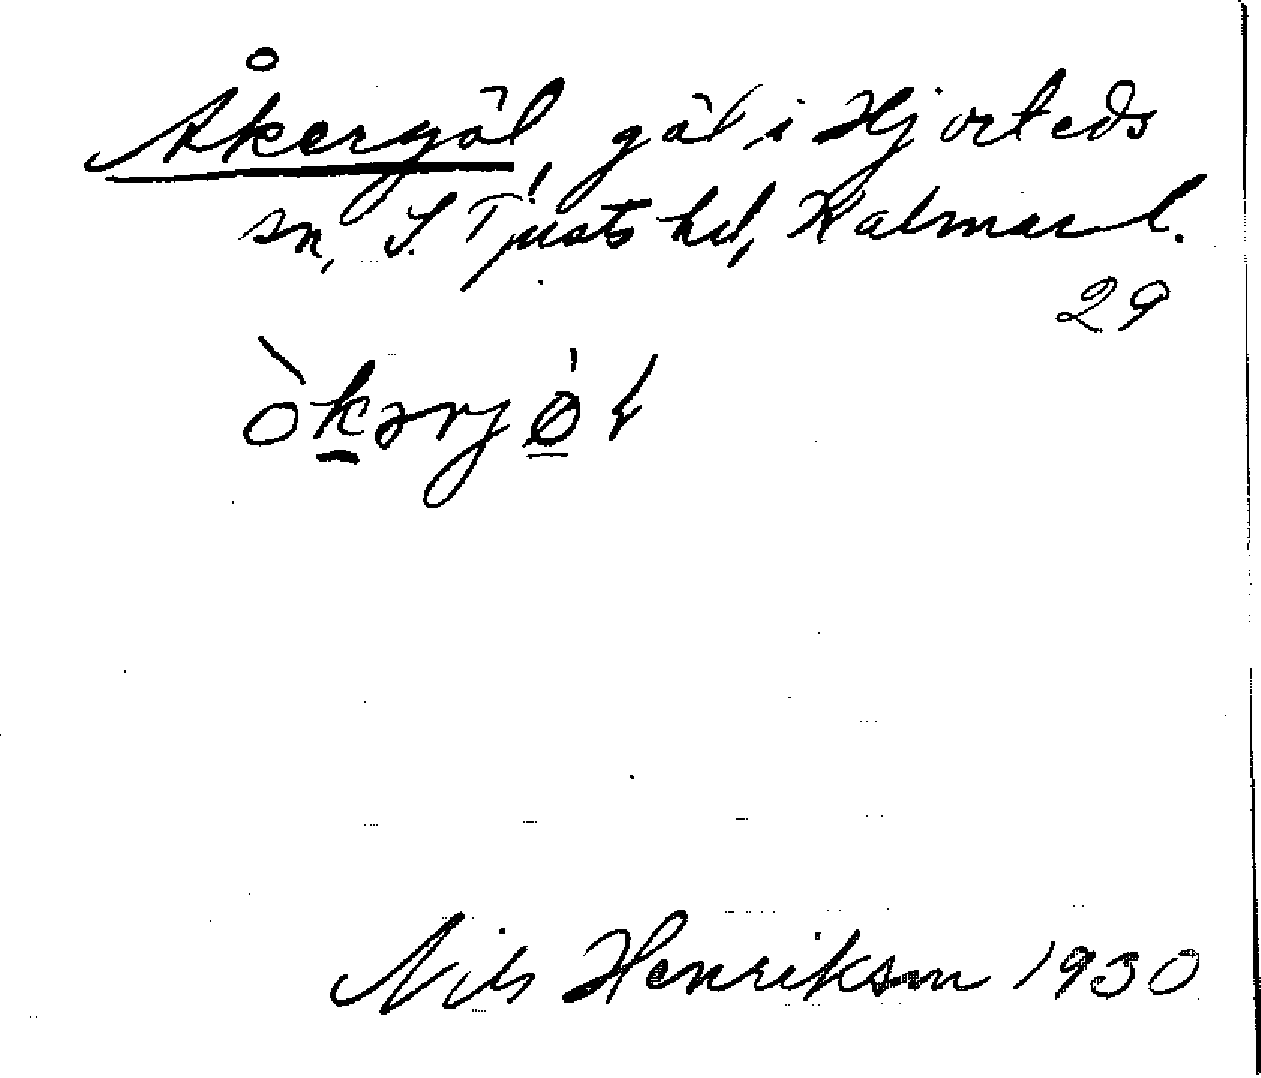 Åkergöl, göl i Hjorteds
sn, S. Tjusts hd, Kalmar l.
29
òkərjø̀l
Nils Henrikson 1930